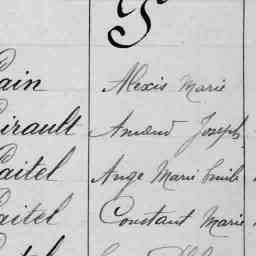 P
ain Alexis Marie
irault Amand Joseph
aitel Ange Marie Emile
aitel Constant Marie